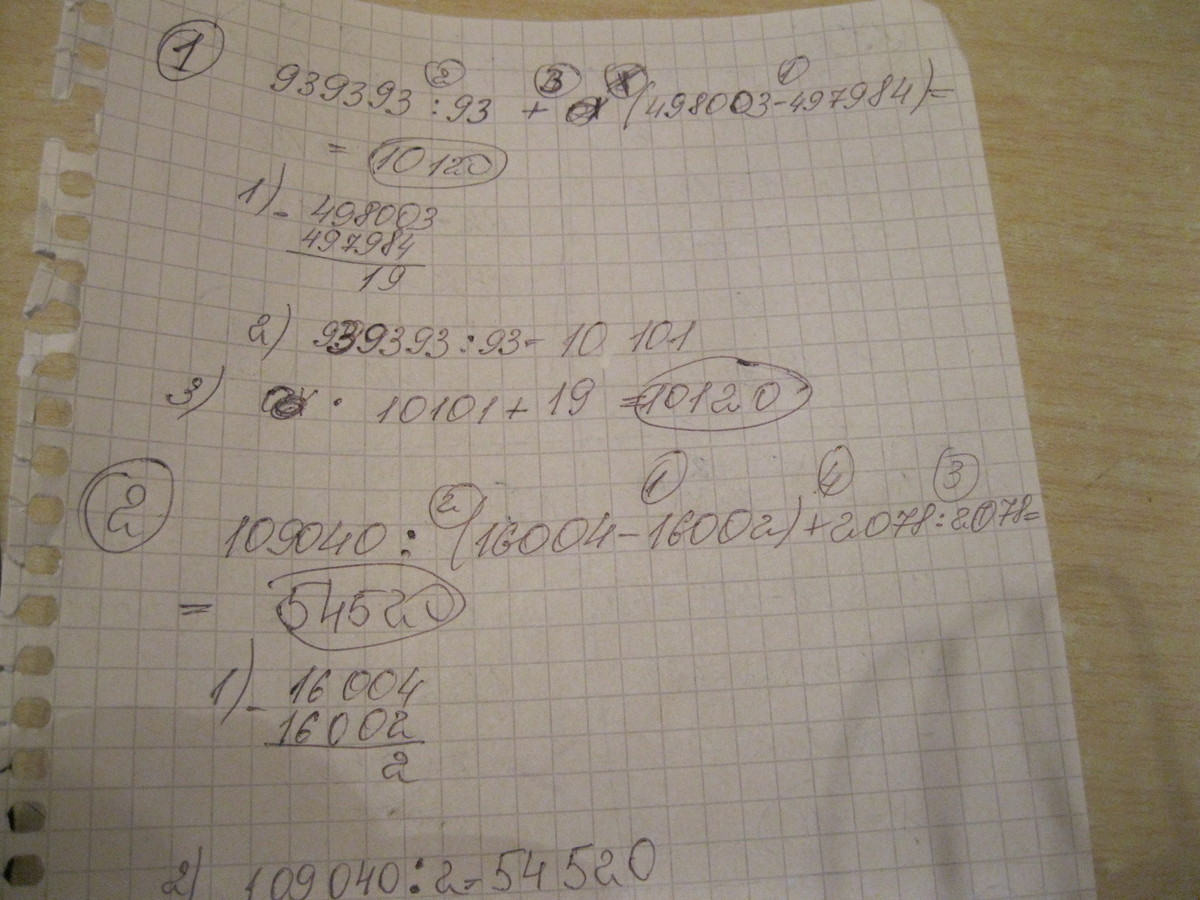 1
2 3 1
939393 : 93 + (498003-497984)=
= 10120
1) - 498003
497984
19
2) 939393:93= 10 101
3) · 10101 + 19 =10120
2
2 1 4 3
109040 : (16004-16002)+2078:2078=
= 54520
1) - 16 004
16002
2
2) 109040:2=54 520